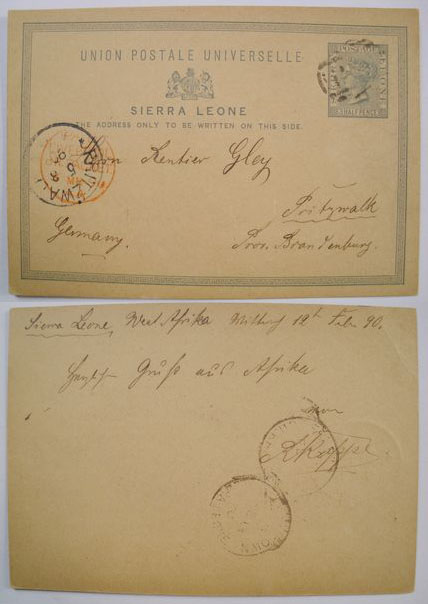 UNION POSTALE UNIVERSELLE
SIERRA LEONE
THE ADDRESS ONLY TO BE WRITTEN ON THIS SIDE.
POSTAGE
HALFPENNY
PRITZWALK
Herrn Rentier Gley
Pritzwalk
Germany.
Prov. Brandenburg.
Sierra Leone, West Afrika Mittwoch 12th Febr 90.
Herzlichen Gruß aus Afrika
von